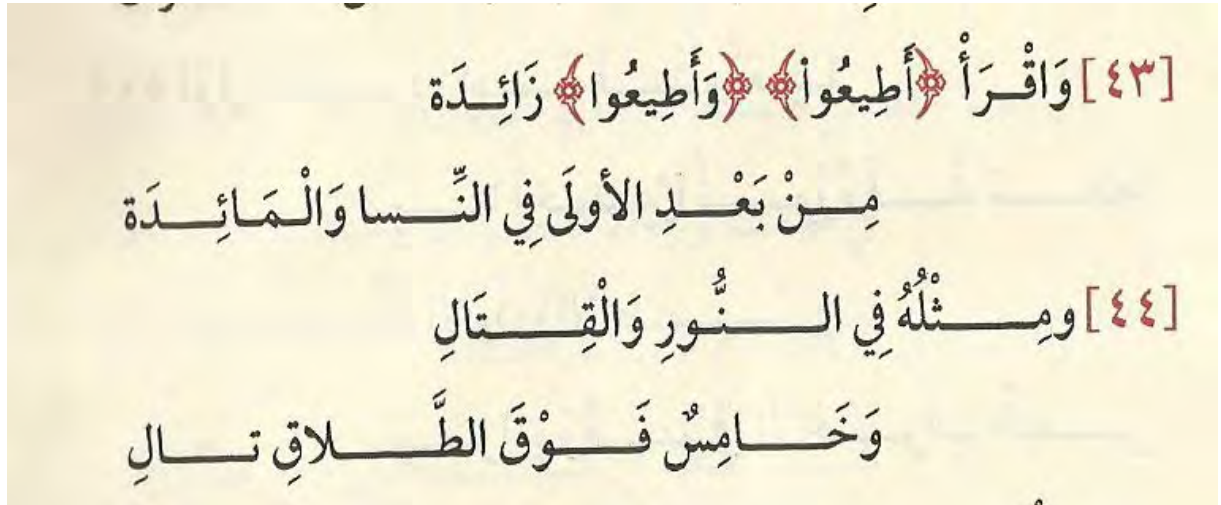 [٤٣] وَاقْرَأْ ﴿أَطِيعُواْ﴾ ﴿وَأَطِيعُوا﴾ زَائِدَة
مِنْ بَعْدِ الأولَى فِي النِّسا وَالْمَائِدَة
[٤٤] ومِثْلُهُ فِي النُّورِ وَالْقِتَالِ
وَخَامِسٌ فَوْقَ الطَّلاقِ تالِ